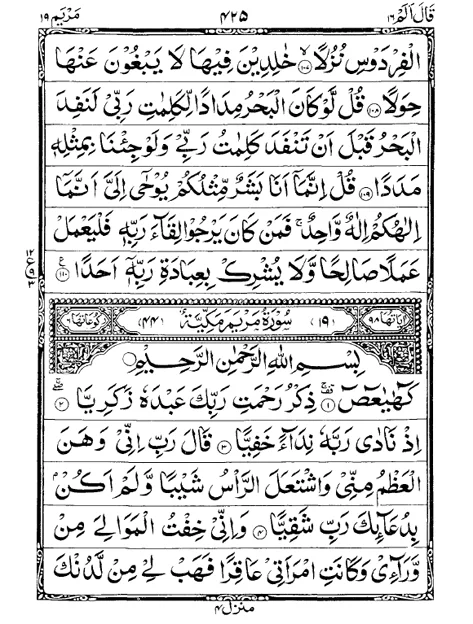 قال الم ١٦ ٤٢٥ مريم ١٩
الْفِرْدَوْسِ نُزُلًا ۙ﴿١٠٧﴾ خٰلِدِيْنَ فِيْهَا لَا يَبْغُوْنَ عَنْهَا
حِوَلًا ﴿١٠٨﴾ قُلْ لَّوْ كَانَ الْبَحْرُ مِدَادًا لِّكَلِمٰتِ رَبِّيْ لَنَفِدَ
الْبَحْرُ قَبْلَ اَنْ تَنْفَدَ كَلِمٰتُ رَبِّيْ وَلَوْ جِئْنَا بِمِثْلِهٖ
مَدَدًا ﴿١٠٩﴾ قُلْ اِنَّمَاۤ اَنَا بَشَرٌ مِّثْلُكُمْ يُوْحٰۤى اِلَيَّ اَنَّمَاۤ
اِلٰهُكُمْ اِلٰهٌ وَّاحِدٌ ۚ فَمَنْ كَانَ يَرْجُوْا لِقَآءَ رَبِّهٖ فَلْيَعْمَلْ
عَمَلًا صَالِحًا وَّلَا يُشْرِكْ بِعِبَادَةِ رَبِّهٖۤ اَحَدًا ﴿١١٠﴾ ع
١٢ ع ٩ ٣
اٰياتها ٩٨ (١٩) سُوْرَةُ مَرْيَمَ مَكِّيَّةٌ (٤٤) ركوعاتها ٦
بِسْمِ اللّٰهِ الرَّحْمٰنِ الرَّحِيْمِ
كٓهٰيٰعٓصٓ ﴿١﴾ ذِكْرُ رَحْمَتِ رَبِّكَ عَبْدَهٗ زَكَرِيَّا ﴿٢﴾
اِذْ نَادٰى رَبَّهٗ نِدَآءً خَفِيًّا ﴿٣﴾ قَالَ رَبِّ اِنِّيْ وَهَنَ
الْعَظْمُ مِنِّيْ وَاشْتَعَلَ الرَّاْسُ شَيْبًا وَّلَمْ اَكُنْۢ
بِدُعَآئِكَ رَبِّ شَقِيًّا ﴿٤﴾ وَاِنِّيْ خِفْتُ الْمَوَالِيَ مِنْ
وَّرَآءِيْ وَكَانَتِ امْرَاَتِيْ عَاقِرًا فَهَبْ لِيْ مِنْ لَّدُنْكَ
منزل ٤